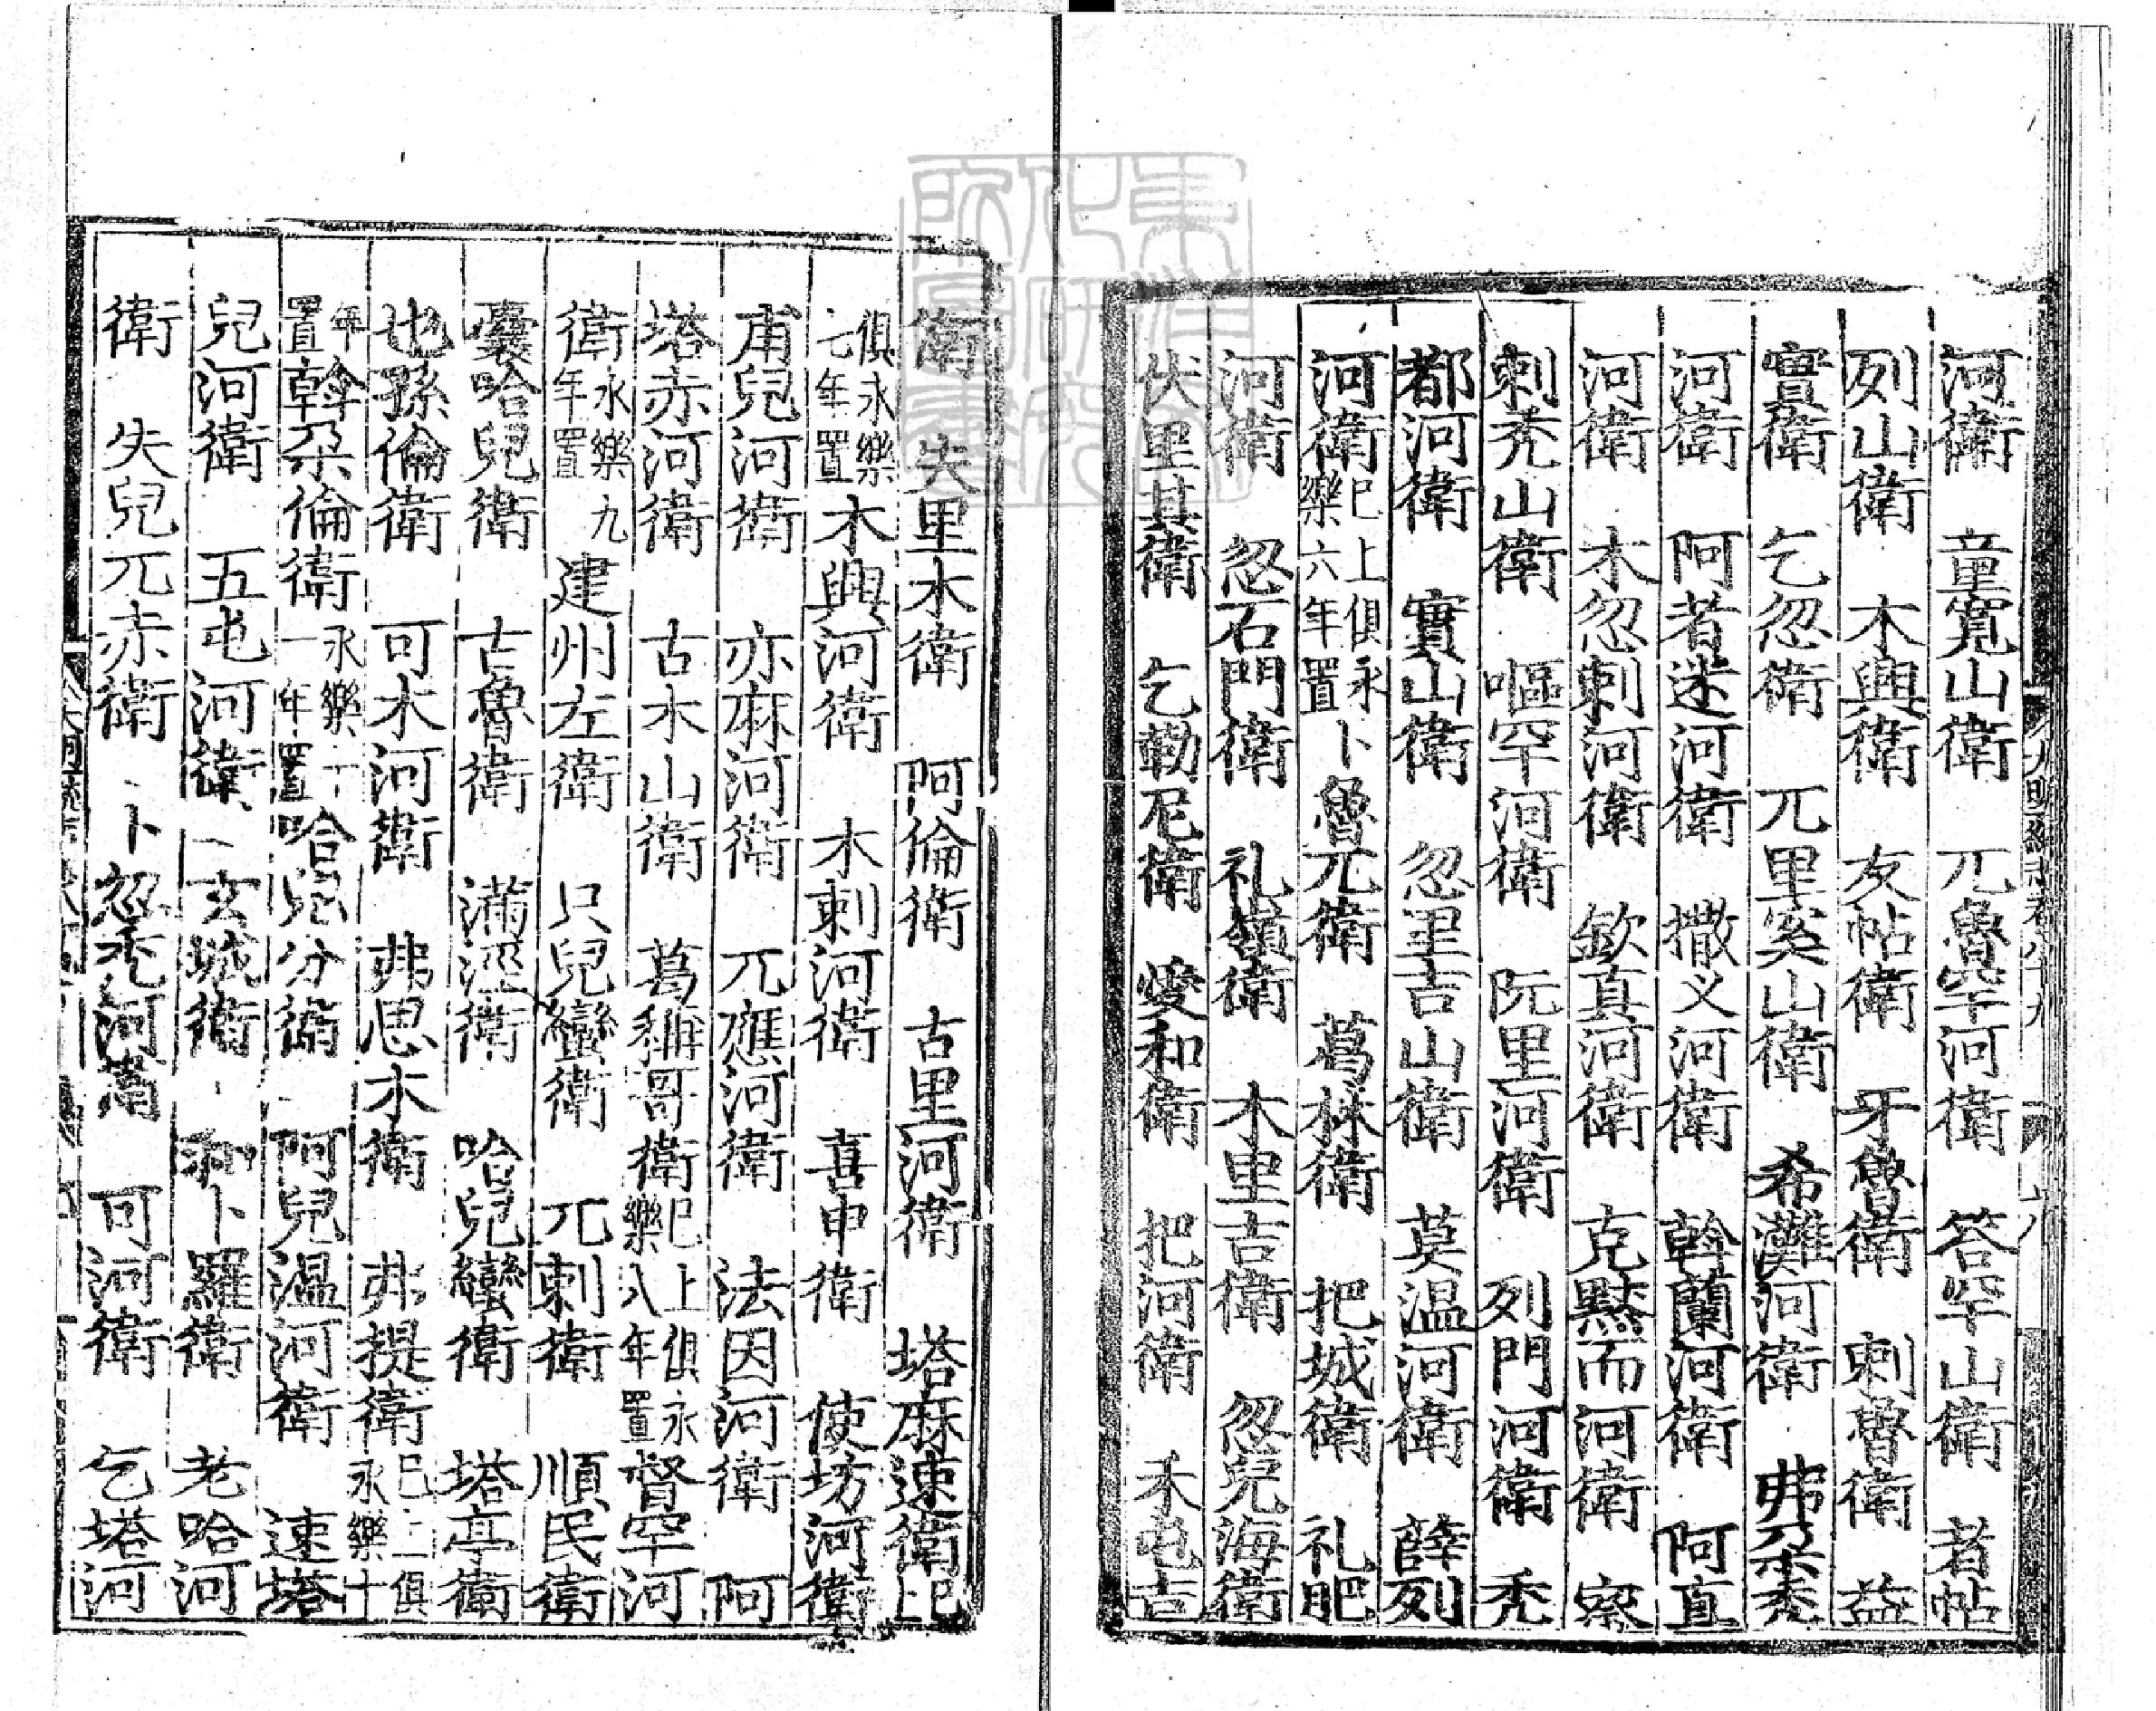 河衛　童寬山衛　兀魯罕河衛　答罕山衛　者帖
列山衛　木興衛　友帖衛　牙魯衛　剌魯衛　益
實衛　乞忽衛　兀里奚山衛　希灘河衛　弗朶禿
河衛　阿者迷河衛　撒义河衛　斡蘭河衛　阿真
河衛　木忽剌河衛　欽真河衛　克黙而河衛　察
剌禿山衛　嘔罕河衛　阮里河衛　列門河衛　禿
都河衛　實山衛　忽里吉山衛　莫温河衛　薛列
河衛　巳上俱永樂六年置　卜魯兀衛　葛林衛　把城衛　礼肥
河衛　忽石門衛　礼嶺衛　木里吉衛　忽兒海衛
伏里其衛　乞勒尼衛　愛和衛　把河衛　禾屯吉
衛　失里木衛　阿倫衛　古里河衛　塔麻速衛　巳上
俱永樂七年置　木興河衛　木剌河衛　喜申衛　使坊河衛
甫兒河衛　亦麻河衛　兀應河衛　法因河衛　阿
塔赤河衛　古木山衛　葛稱哥衛　巳上俱永樂八年置　督罕河
衛　永樂九年置　建州左衛　只兒蠻衛　兀剌衛　順民衛
囊哈兒衛　古魯衛　滿涇衛　哈兒蠻衛　塔亭衛
也孫倫衛　可木河衛　弗思木衛　弗提衛　巳上俱永樂十
年置　斡朶倫衛　永樂十一年置　哈兒分衛　阿兒温河衛　速塔
兒河衛　五屯河衛　玄城衛　和卜羅衛　老哈河
衛　失兒兀赤衛　卜忽禿河衛　可河衛　乞塔河